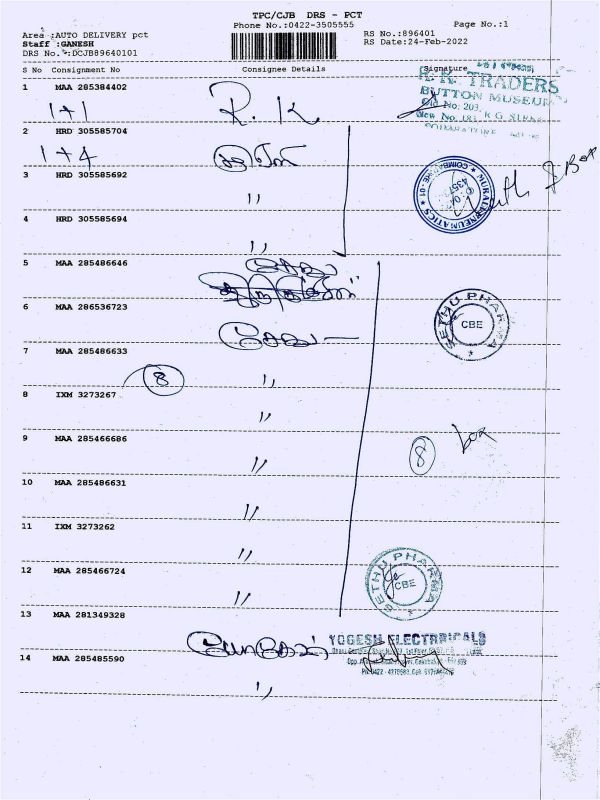 TPC/CJB DRS - PCT
Phone No.:0422-3505555
Page No.:1
Area :AUTO DELIVERY pct
RS No.:896401
Staff :GANESH
RS Date:24-Feb-2022
DRS No. :DCJB89640101
S No Consignment No Consignee Details Signature
1 MAA 285384402
1+1 R. K.
R.K. TRADERS
BUTTON MUSEUM
Old No: 203,
2 HRD 305585704
1+4
3 HRD 305585692
"
MURALI PNEUMATICS
COIMBATORE - 01
4 HRD 305585694
"
5 MAA 285486646
சேது
6 MAA 286536723
சேது
SETHU PHARMA
CBE
7 MAA 285486633
8 "
8 IXM 3273267
"
9 MAA 285466686
" 8 box
10 MAA 285486631
"
11 IXM 3273262
"
12 MAA 285466724
"
SETHU PHARMA
CBE
13 MAA 281349328
யோகேஷ்
YOGESH ELECTRICALS
14 MAA 285485590
"